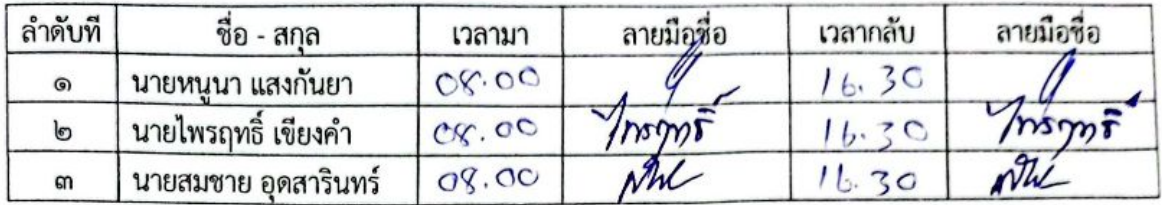 ลำดับที่ ชื่อ - สกุล เวลามา ลายมือชื่อ เวลากลับ ลายมือชื่อ
๑ นายหนูนา แสงกันยา 08.00 16.30
๒ นายไพรฤทธิ์ เขียงคำ 08.00 ไพรฤทธิ์ 16.30 ไพรฤทธิ์
๓ นายสมชาย อุดสารินทร์ 08.00 16.30